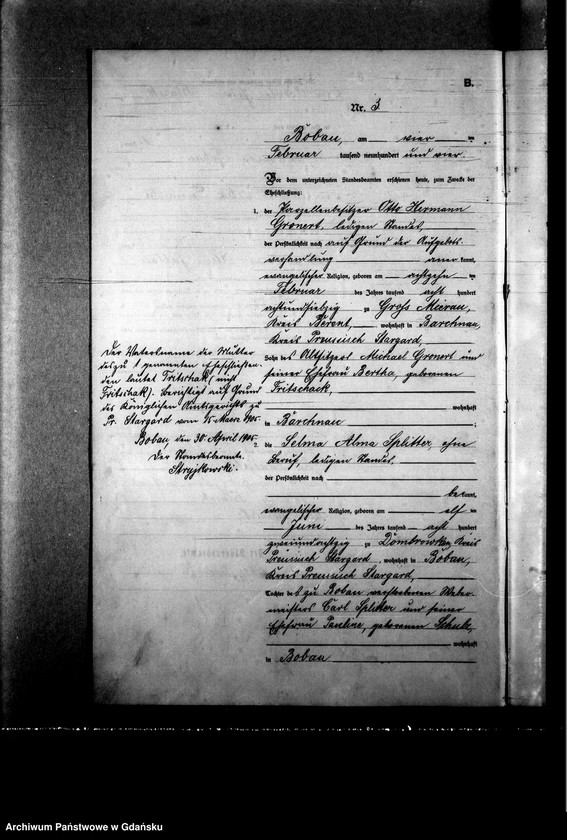 B.
Nr. 3
Bobau, am vier ten
Februar tausend neunhundert und vier.
Vor dem unterzeichneten Standesbeamten erschienen heute, zum Zwecke der
Eheschließung:
1. der Parzellenbesitzer Otto Hermann
Gronert, ledigen Standes,
der Persönlichkeit nach auf Grund der Aufgebots-
verhandlung anerkannt,
evangelischer Religion, geboren am achtzehn ten
Februar des Jahres tausend acht hundert
achtundsiebzig zu Gross Mierau,
Kreis Berent, wohnhaft in Barchnau,
Kreis Preussisch Stargard,
Sohn des Altsitzers Michael Gronert und
seiner Ehefrau Bertha, geborenen
Fritschack,
wohnhaft
in Barchnau
2. die Selma Alma Splitter, ohne
Beruf, ledigen Standes,
der Persönlichkeit nach
bekannt,
evangelischer Religion, geboren am elf ten
Juni des Jahres tausend acht hundert
zweiundachtzig zu Dombrowken, Kreis
Preussisch Stargard, wohnhaft in Bobau,
Kreis Preussisch Stargard,
Tochter des zu Bobau verstorbenen Weber-
meisters Carl Splitter und seiner
Ehefrau Pauline, geborenen
wohnhaft
in Bobau
Der Vatersname der Mutter
des zu 1 genannten Eheschließen-
den lautet Tritschak (nicht
Fritschak). Berichtigt auf Grund
des Königlichen Amtsgerichts zu
Pr. Stargard vom 15. März 1905.
Bobau den 30. April 1905.
Der Standesbeamte.
Stryjkowski.
Archiwum Państwowe w Gdańsku